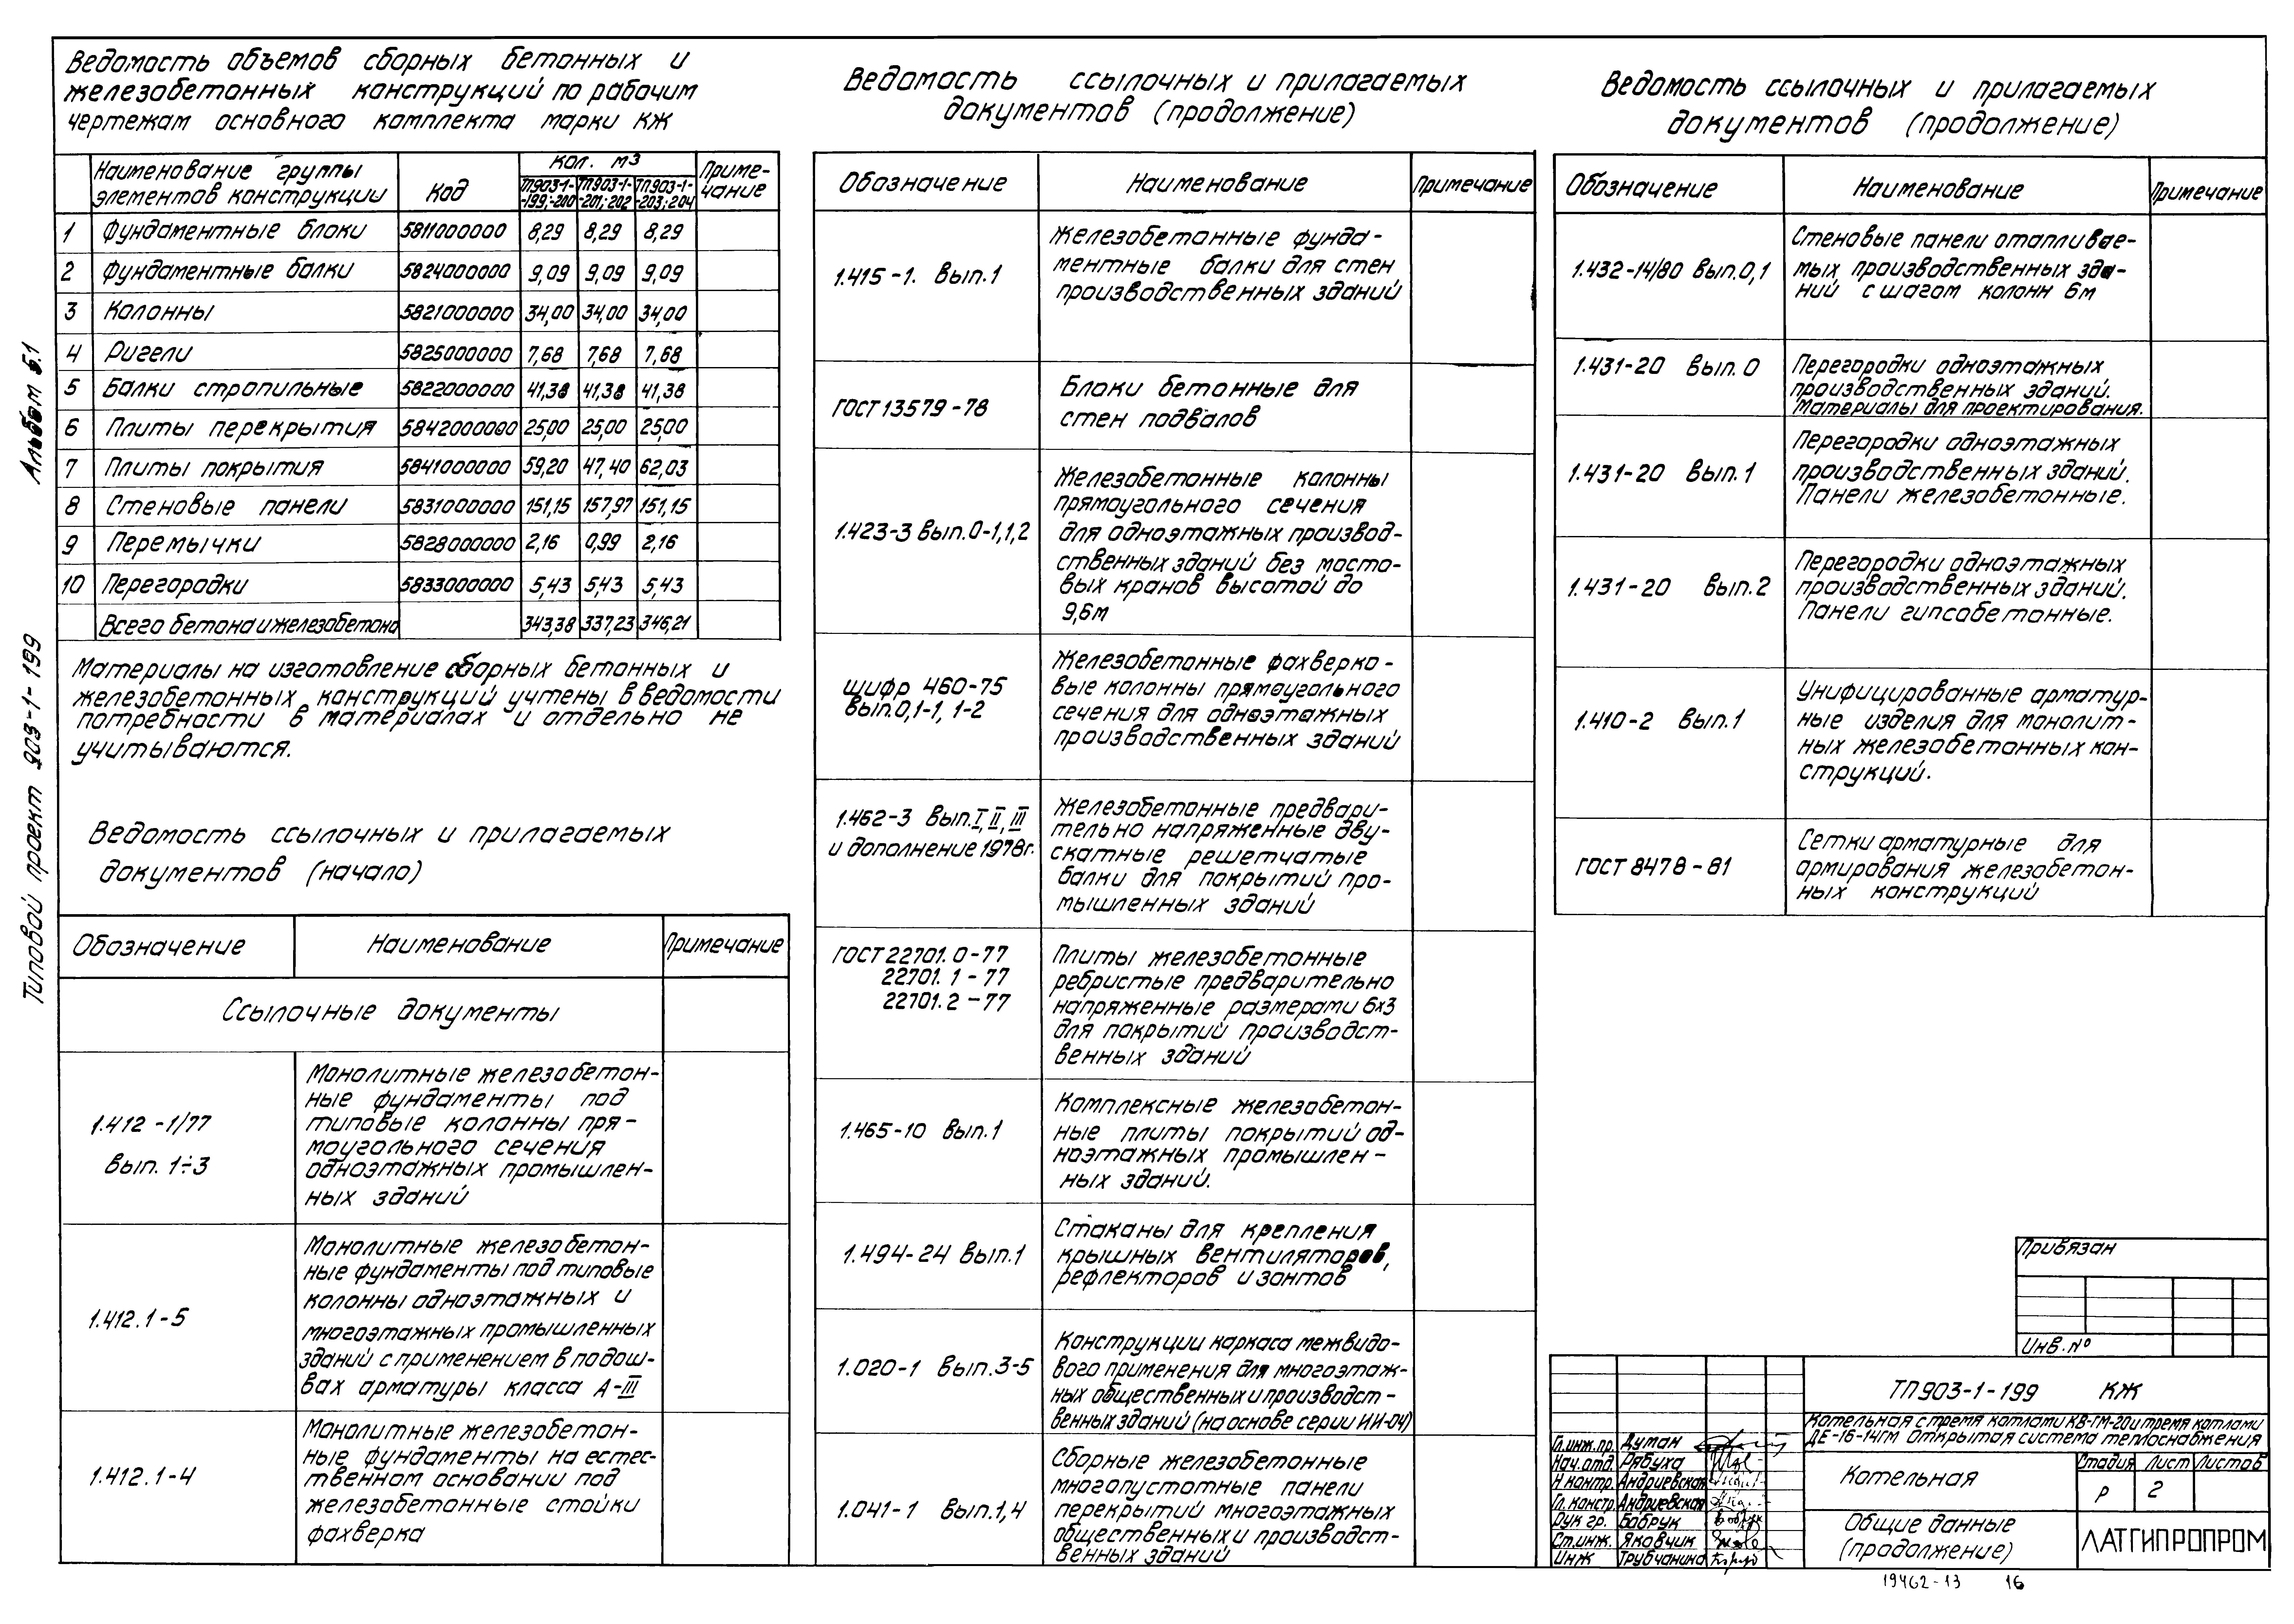 Альбом 5.1
Типовой проект 903-1-199
Ведомость объемов сборных бетонных и
железобетонных конструкций по рабочим
чертежам основного комплекта марки КЖ
Наименование группы элементов конструкции Код Кол. м3 Приме-чание
ТП903-1-199;-200 ТП903-1-201;202 ТП903-1-203;204
1 Фундаментные блоки 5811000000 8,29 8,29 8,29
2 Фундаментные балки 5824000000 9,09 9,09 9,09
3 Колонны 5821000000 34,00 34,00 34,00
4 Ригели 5825000000 7,68 7,68 7,68
5 Балки стропильные 5822000000 41,38 41,38 41,38
6 Плиты перекрытия 5842000000 25,00 25,00 25,00
7 Плиты покрытия 5841000000 59,20 47,40 62,03
8 Стеновые панели 5831000000 151,15 157,97 151,15
9 Перемычки 5828000000 2,16 0,99 2,16
10 Перегородки 5833000000 5,43 5,43 5,43
Всего бетона и железобетона 343,38 337,23 346,21
Материалы на изготовление сборных бетонных и
железобетонных конструкций учтены в ведомости
потребности в материалах и отдельно не
учитываются.
Ведомость ссылочных и прилагаемых
документов (начало)
Обозначение Наименование Примечание
Ссылочные документы
1.412-1/77
вып. 1÷3
Монолитные железобетон-
ные фундаменты под
типовые колонны пря-
моугольного сечения
одноэтажных промышлен-
ных зданий
1.412.1-5
Монолитные железобетон-
ные фундаменты под типовые
колонны одноэтажных и
многоэтажных промышленных
зданий с применением в подош-
вах арматуры класса А-III
1.412.1-4
Монолитные железобетон-
ные фундаменты на естес-
твенном основании под
железобетонные стойки
фахверка
Ведомость ссылочных и прилагаемых
документов (продолжение)
Обозначение Наименование Примечание
1.415-1. Вып.1
Железобетонные фунда-
ментные балки для стен
производственных зданий
ГОСТ 13579-78
Блоки бетонные для
стен подвалов
1.423-3 Вып.0-1,1,2
Железобетонные колонны
прямоугольного сечения
для одноэтажных производ-
ственных зданий без мосто-
вых кранов высотой до
9,6м
шифр 460-75
Вып.0,1-1, 1-2
Железобетонные фахверко-
вые колонны прямоугольного
сечения для одноэтажных
производственных зданий
1.462-3 Вып.I, II, III
и дополнение 1978г.
Железобетонные предвари-
тельно напряженные дву-
скатные решетчатые
балки для покрытий про-
мышленных зданий
ГОСТ 22701.0-77
22701.1-77
22701.2-77
Плиты железобетонные
ребристые предварительно
напряженные размерами 6х3
для покрытий производст-
венных зданий
1.465-10 Вып.1
Комплексные железобетон-
ные плиты покрытий од-
ноэтажных промышлен-
ных зданий.
1.494-24 Вып.1
Стаканы для крепления
крышных вентиляторов,
рефлекторов и зонтов
1.020-1 Вып.3-5
Конструкции каркаса межвидо-
вого применения для многоэтаж-
ных общественных и производст-
венных зданий (на основе серии ИИ-04)
1.041-1 Вып.1,4
Сборные железобетонные
многопустотные панели
перекрытий многоэтажных
общественных и производст-
венных зданий
Ведомость ссылочных и прилагаемых
документов (продолжение)
Обозначение Наименование Примечание
1.432-14/80 Вып.0,1
Стеновые панели отапливае-
мых производственных зда-
ний с шагом колонн 6м
1.431-20 Вып.0
Перегородки одноэтажных
производственных зданий.
Материалы для проектирования.
1.431-20 Вып.1
Перегородки одноэтажных
производственных зданий.
Панели железобетонные.
1.431-20 Вып.2
Перегородки одноэтажных
производственных зданий.
Панели гипсобетонные.
1.410-2 Вып.1
Унифицированные арматур-
ные изделия для монолит-
ных железобетонных кон-
струкций.
ГОСТ 8478-81
Сетки арматурные для
армирования железобетон-
ных конструкций
Привязан
Инв. №
ТП903-1-199 КЖ
Котельная с тремя котлами КВ-ГМ-20 и тремя котлами
ДЕ-16-14ГМ Открытая система теплоснабжения
Гл.инж.пр. Думан
Нач.отд. Рябуха
Н.контр. Андриевская
Гл.констр. Андриевская
Рук гр. Бабрук
Ст.инж. Яковчик
Инж Трубчанина
Котельная
Стадия Лист Листов
Р 2
Общие данные
(продолжение)
ЛАТГИПРОПРОМ
19462-13 16